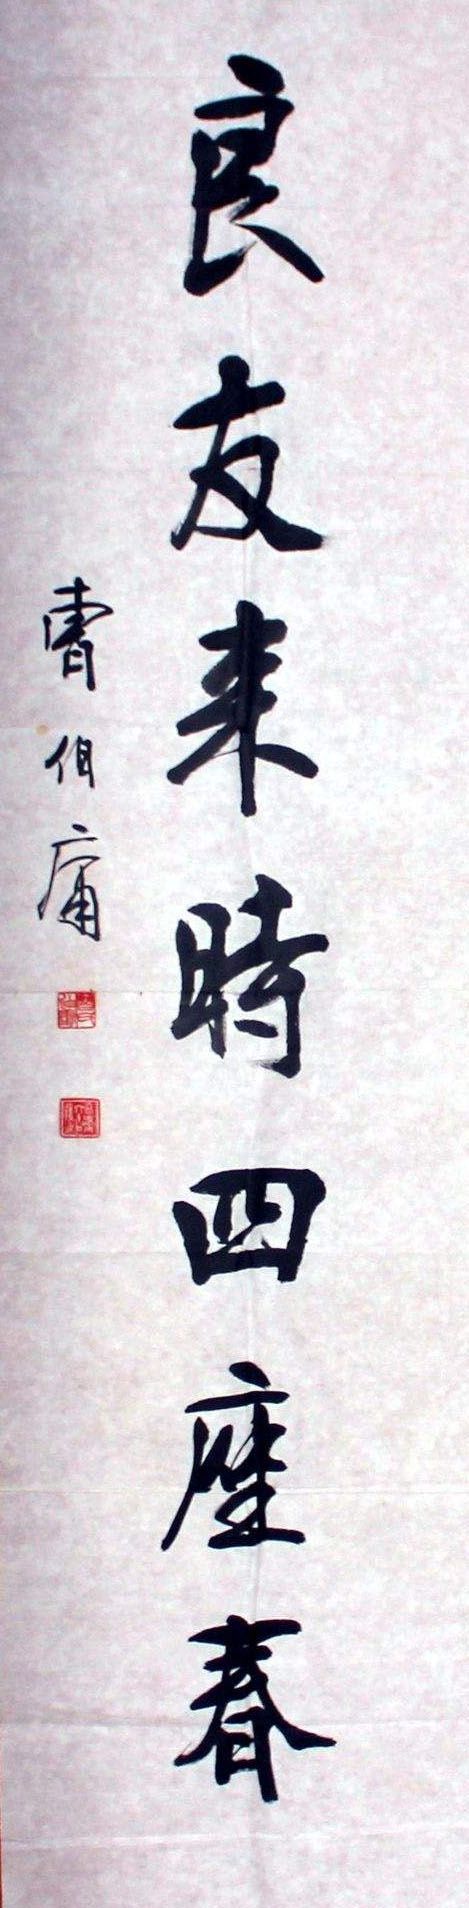 良友来時四座春
曹伯庸